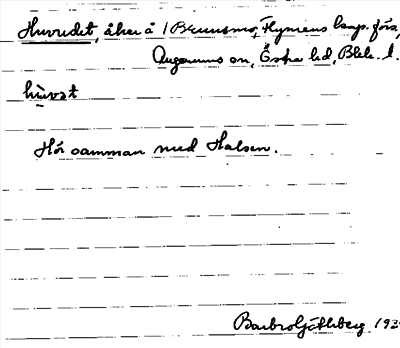 Huvudet, åker å 1 Brunsmo, Flymens kmps. förs,
Augerums sn, Östra hd, Blek. l.
hùvət
Hör samman med Halsen.
Barbro Göthberg 193